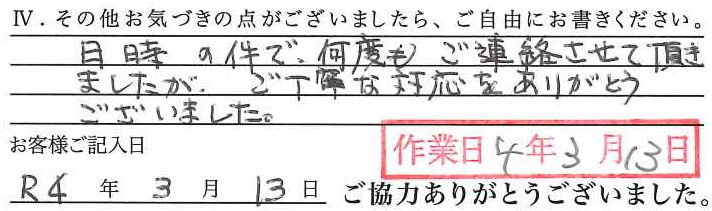 Ⅳ．その他お気づきの点がございましたら、ご自由にお書きください。
日時の件で、何度もご連絡させて頂き
ましたが、ご丁寧な対応をありがとう
ございました。
お客様ご記入日
作業日4年3月13日
R4年3月13日 ご協力ありがとうございました。